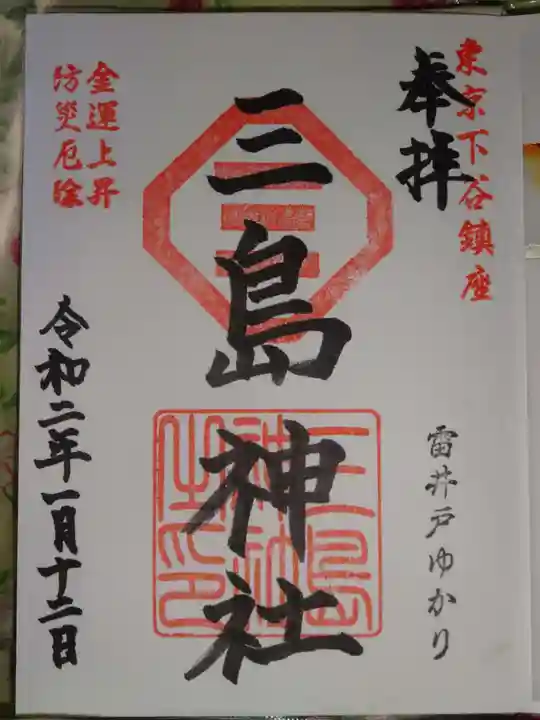 東京下谷鎮座
奉拝
雷井戸ゆかり
三島神社
三島神社之印
金運上昇
防災厄除
令和二年一月十二日